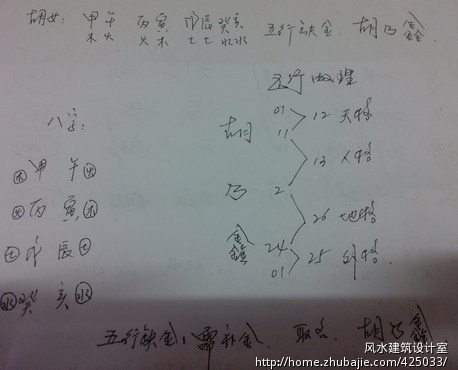 胡女: 甲午 丙寅 戊辰 癸亥 五行缺金. 胡乃鑫
木火 火木 土土 水水
五行四理
八字:
胡 01 11 > 12 天格
> 13 人格
乃 2
> 26 地格
鑫 24 01 > 25 外格.
木 甲 午 火
火 丙 寅 木
土 戊 辰 土
水 癸 亥 水
五行缺金, 需补金. 取名. 胡乃鑫
风水建筑设计室
http://home.zhubajie.com/425033/